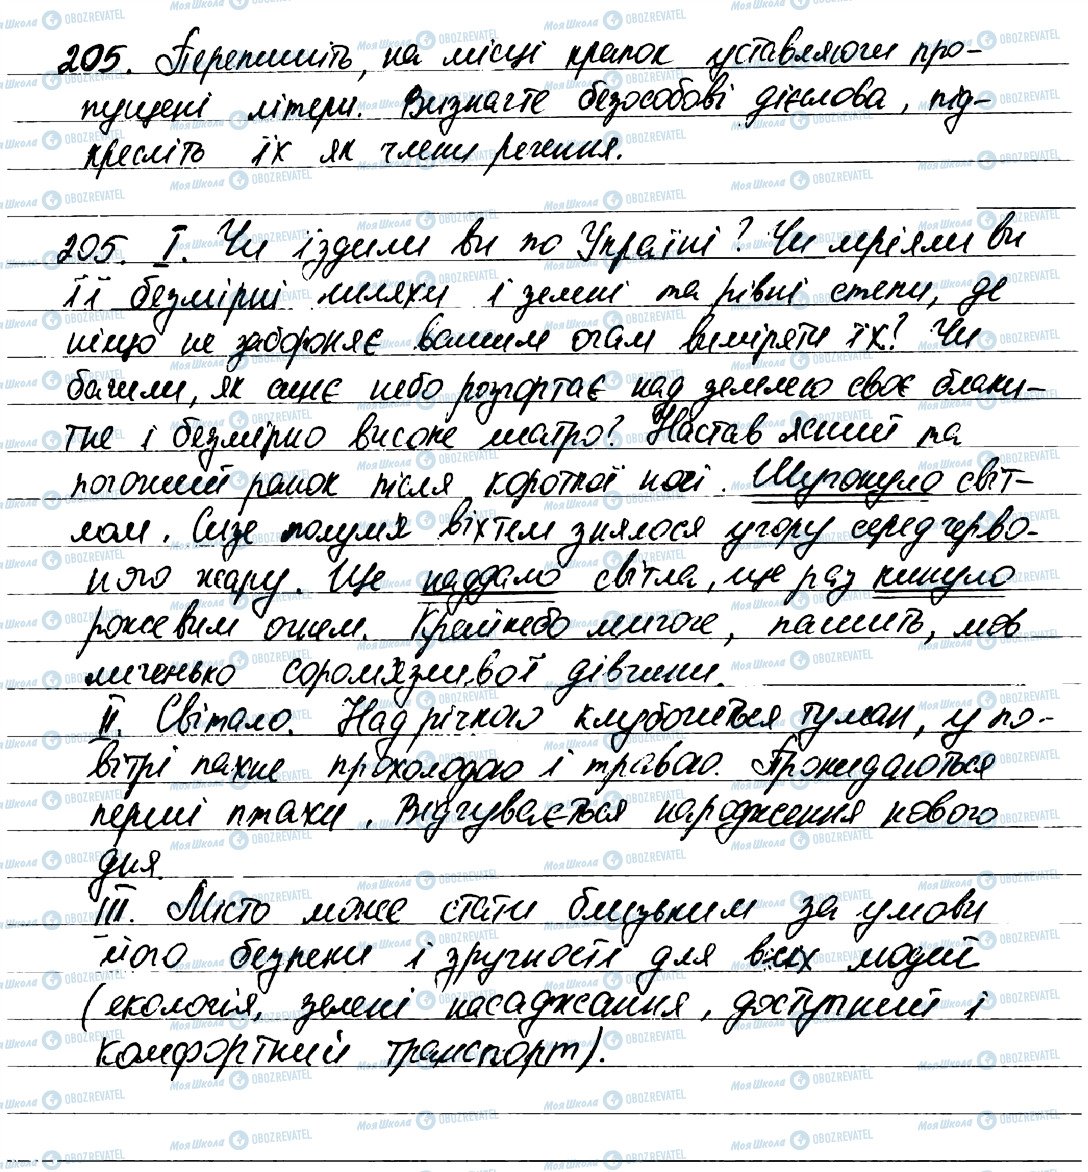 205. Перепишіть, на місці крапок уставляючи про-
пущені літери. Визначте безособові дієслова, під-
кресліть їх як члени речення.
205. I. Чи їздили ви по Україні? Чи міряли ви
її безмірні шляхи і зелені та рівні степи, де
ніщо не забороняє вашим очам виміряти їх? Чи
бачили, як синє небо розгортає над землею своє блаки-
тне і безмірно високе шатро? Настав ясний та
погожий ранок після короткої ночі. Шугонуло світ-
лом. Сизе полум'я віхтем знялося угору серед черво-
ного жару. Ще наддало світла, ще раз кинуло
рожевим огнем. Крайнебо миготе, пашить, мов
личенько сором'язливої дівчини.
II. Світало. Над річкою клубочиться туман, у по-
вітрі пахне прохолодою і травою. Прокидаються
перші птахи. Відчувається народження нового
дня.
III. Місто може стати близьким за умови
його безпеки і зручності для всіх людей
(екологія, зелені насадження, доступний і
комфортний транспорт).